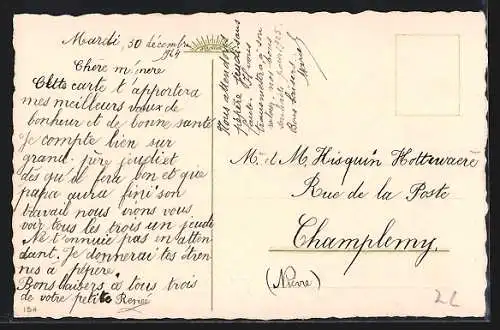 Mardi, 30 décembre
1924
Chère m'mère
Cette carte t'apportera
mes meilleurs voeux de
bonheur et de bonne santé
Je compte bien sur
grand-père jeudi et
dès qu'il fera bon et que
papa aura fini son
travail nous irons vous
voir tous les trois un jeudi
Ne t'ennuie pas en atten
dant. Je donnerai tes étren
nes à pépère.
Bons baisers à tous trois
de votre petite Renée
184
Nous attendons
pépère jeudi sans
faute. Il vous
transmettra à son
retour nos bons
souhaits pour 1925.
Bons baisers
M. et M. Hisquin Hottewaere
Rue de la Poste
Champlemy.
(Nièvre)
2L